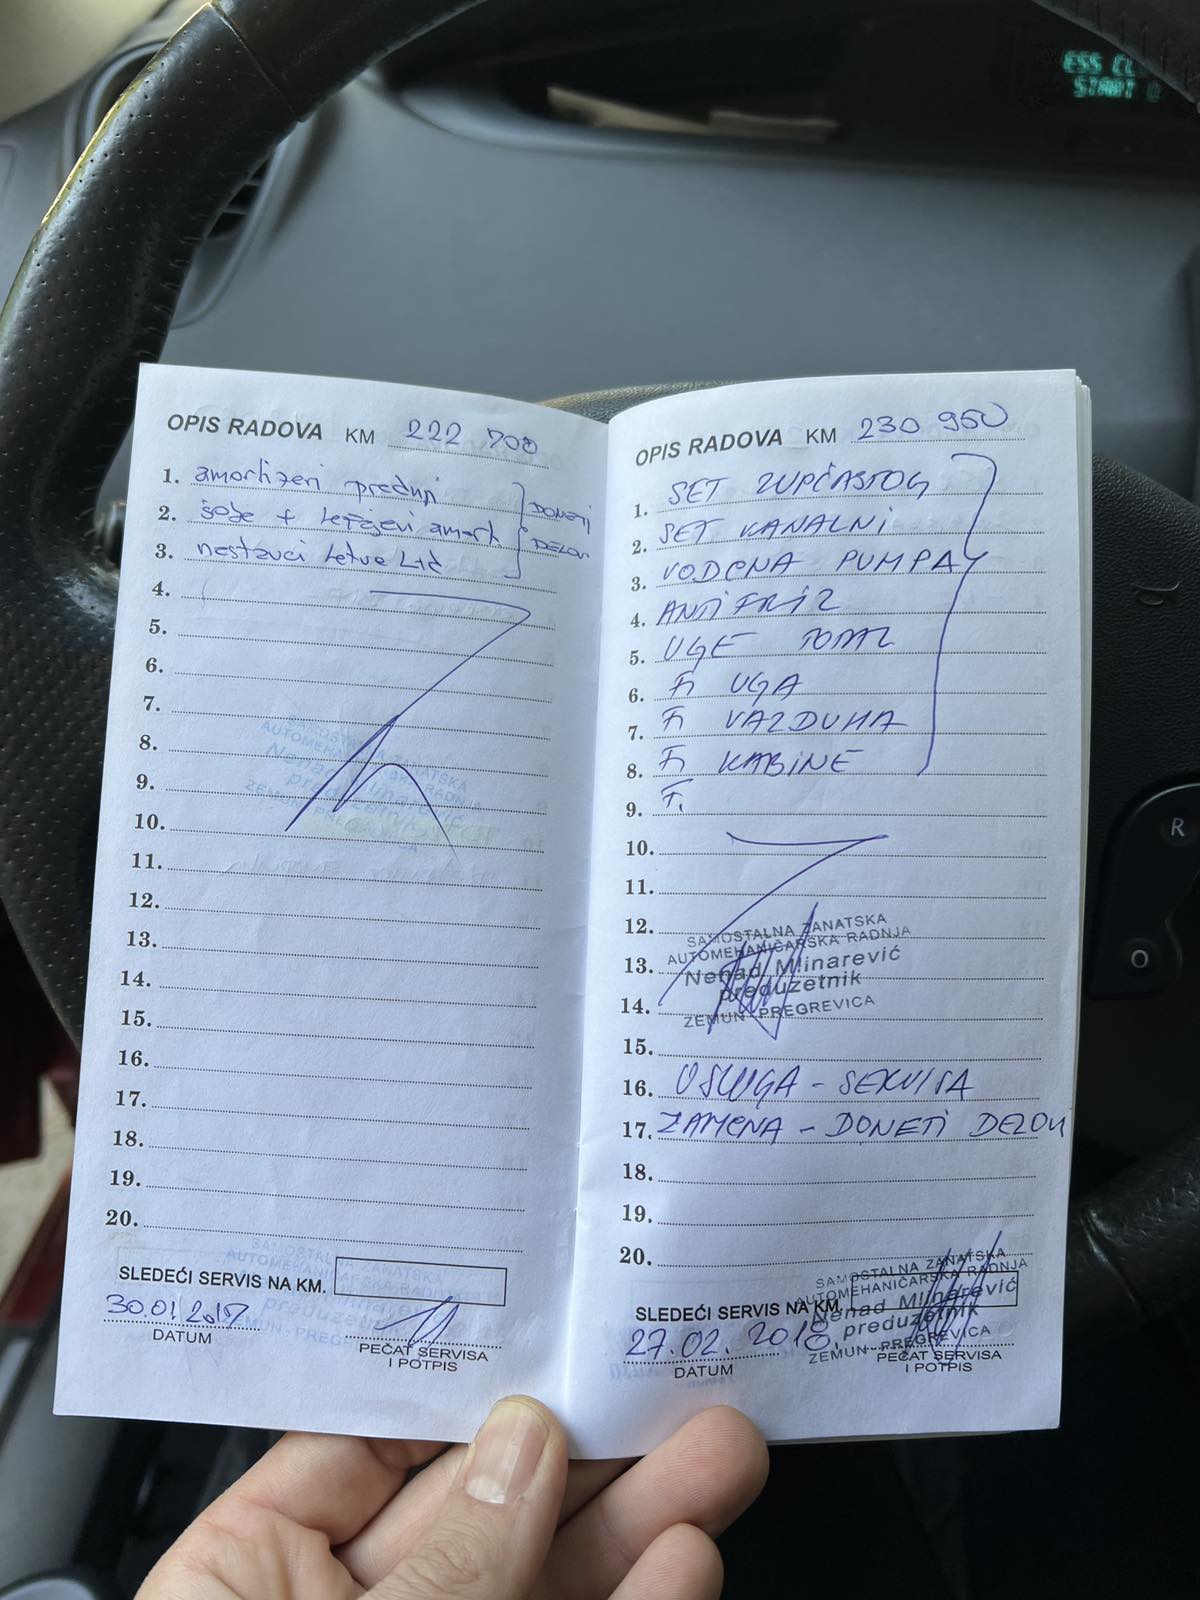 ESS CL
START
OPIS RADOVA KM 222 700
1. amortizeri prednji
2. šolje + ležajevi amort.
3. nastavci letve L+d
DONETI
DELOVI
4.
5.
6.
7.
8.
9.
10.
11.
12.
13.
14.
15.
16.
17.
18.
19.
20.
SLEDEĆI SERVIS NA KM.
30.01.2017
DATUM
PEČAT SERVISA
I POTPIS
OPIS RADOVA KM 230 950
1. SET ZUPČASTOG
2. SET KANALNI
3. VODENA PUMPA
4. ANTIFRIZ
5. UGE TOTAL
6. F. UGA
7. F. VAZDUHA
8. F. KABINE
9. F.
10.
11.
12.
13.
14.
SAMOSTALNA ZANATSKA
AUTOMEHANIČARSKA RADNJA
Nenad Mlinarević
preduzetnik
ZEMUN - PREGREVICA
15.
16. USLUGA - SERVISA
17. ZAMENA - DONETI DELOVI
18.
19.
20.
SAMOSTALNA ZANATSKA
AUTOMEHANIČARSKA RADNJA
Nenad Mlinarević
preduzetnik
ZEMUN - PREGREVICA
SLEDEĆI SERVIS NA KM.
27.02.2018.
DATUM
PEČAT SERVISA
I POTPIS
R
O